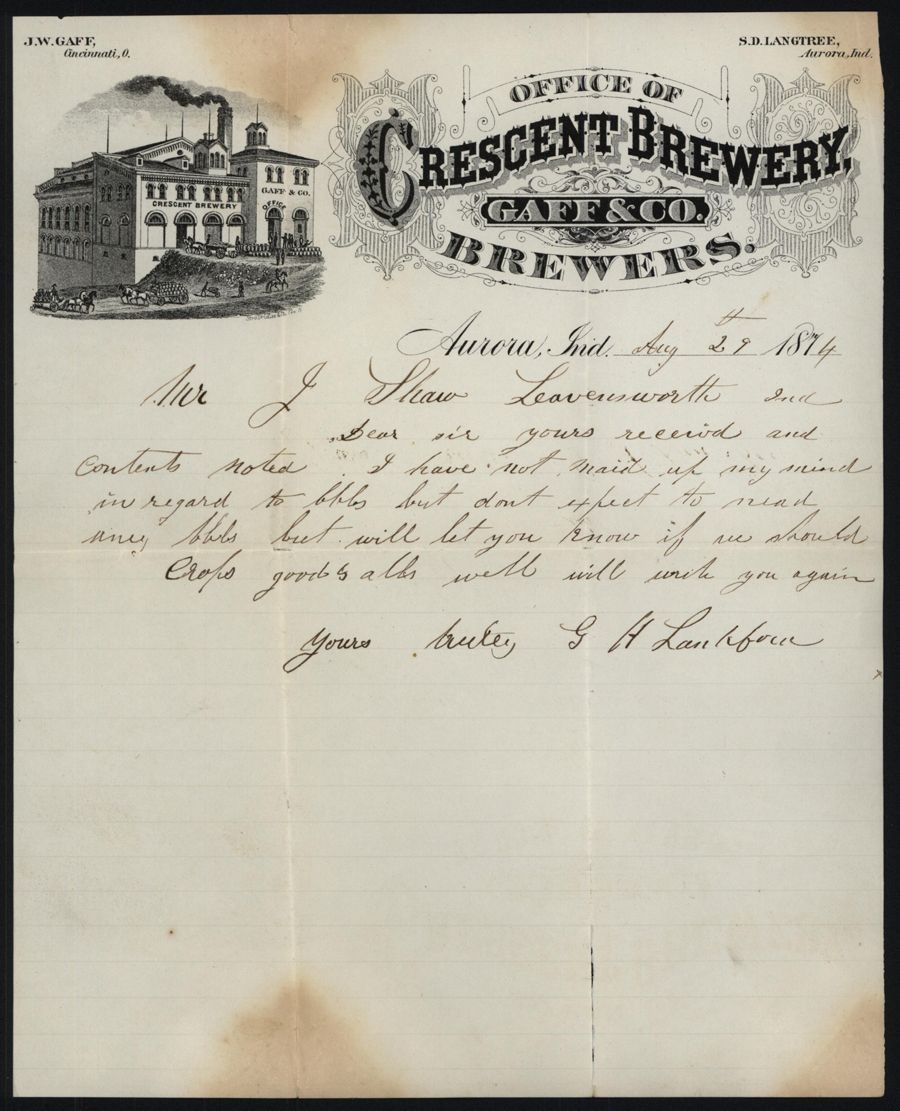 J.W. GAFF,
Cincinnati, O.
S.D. LANGTREE,
Aurora, Ind.
OFFICE OF
CRESCENT BREWERY,
GAFF & CO.
BREWERS.
GAFF & CO.
OFFICE
CRESCENT BREWERY
Aurora, Ind. Aug 29th 1874
Mr J Shaw Leavensworth Ind
Dear sir yours receivd and
contents noted. I have not maid up my mind
in regard to bbls but dont expect to nead
aney bbls but will let you know if we should
Crops good & alls well will write you again
Yours truley G H Lankford